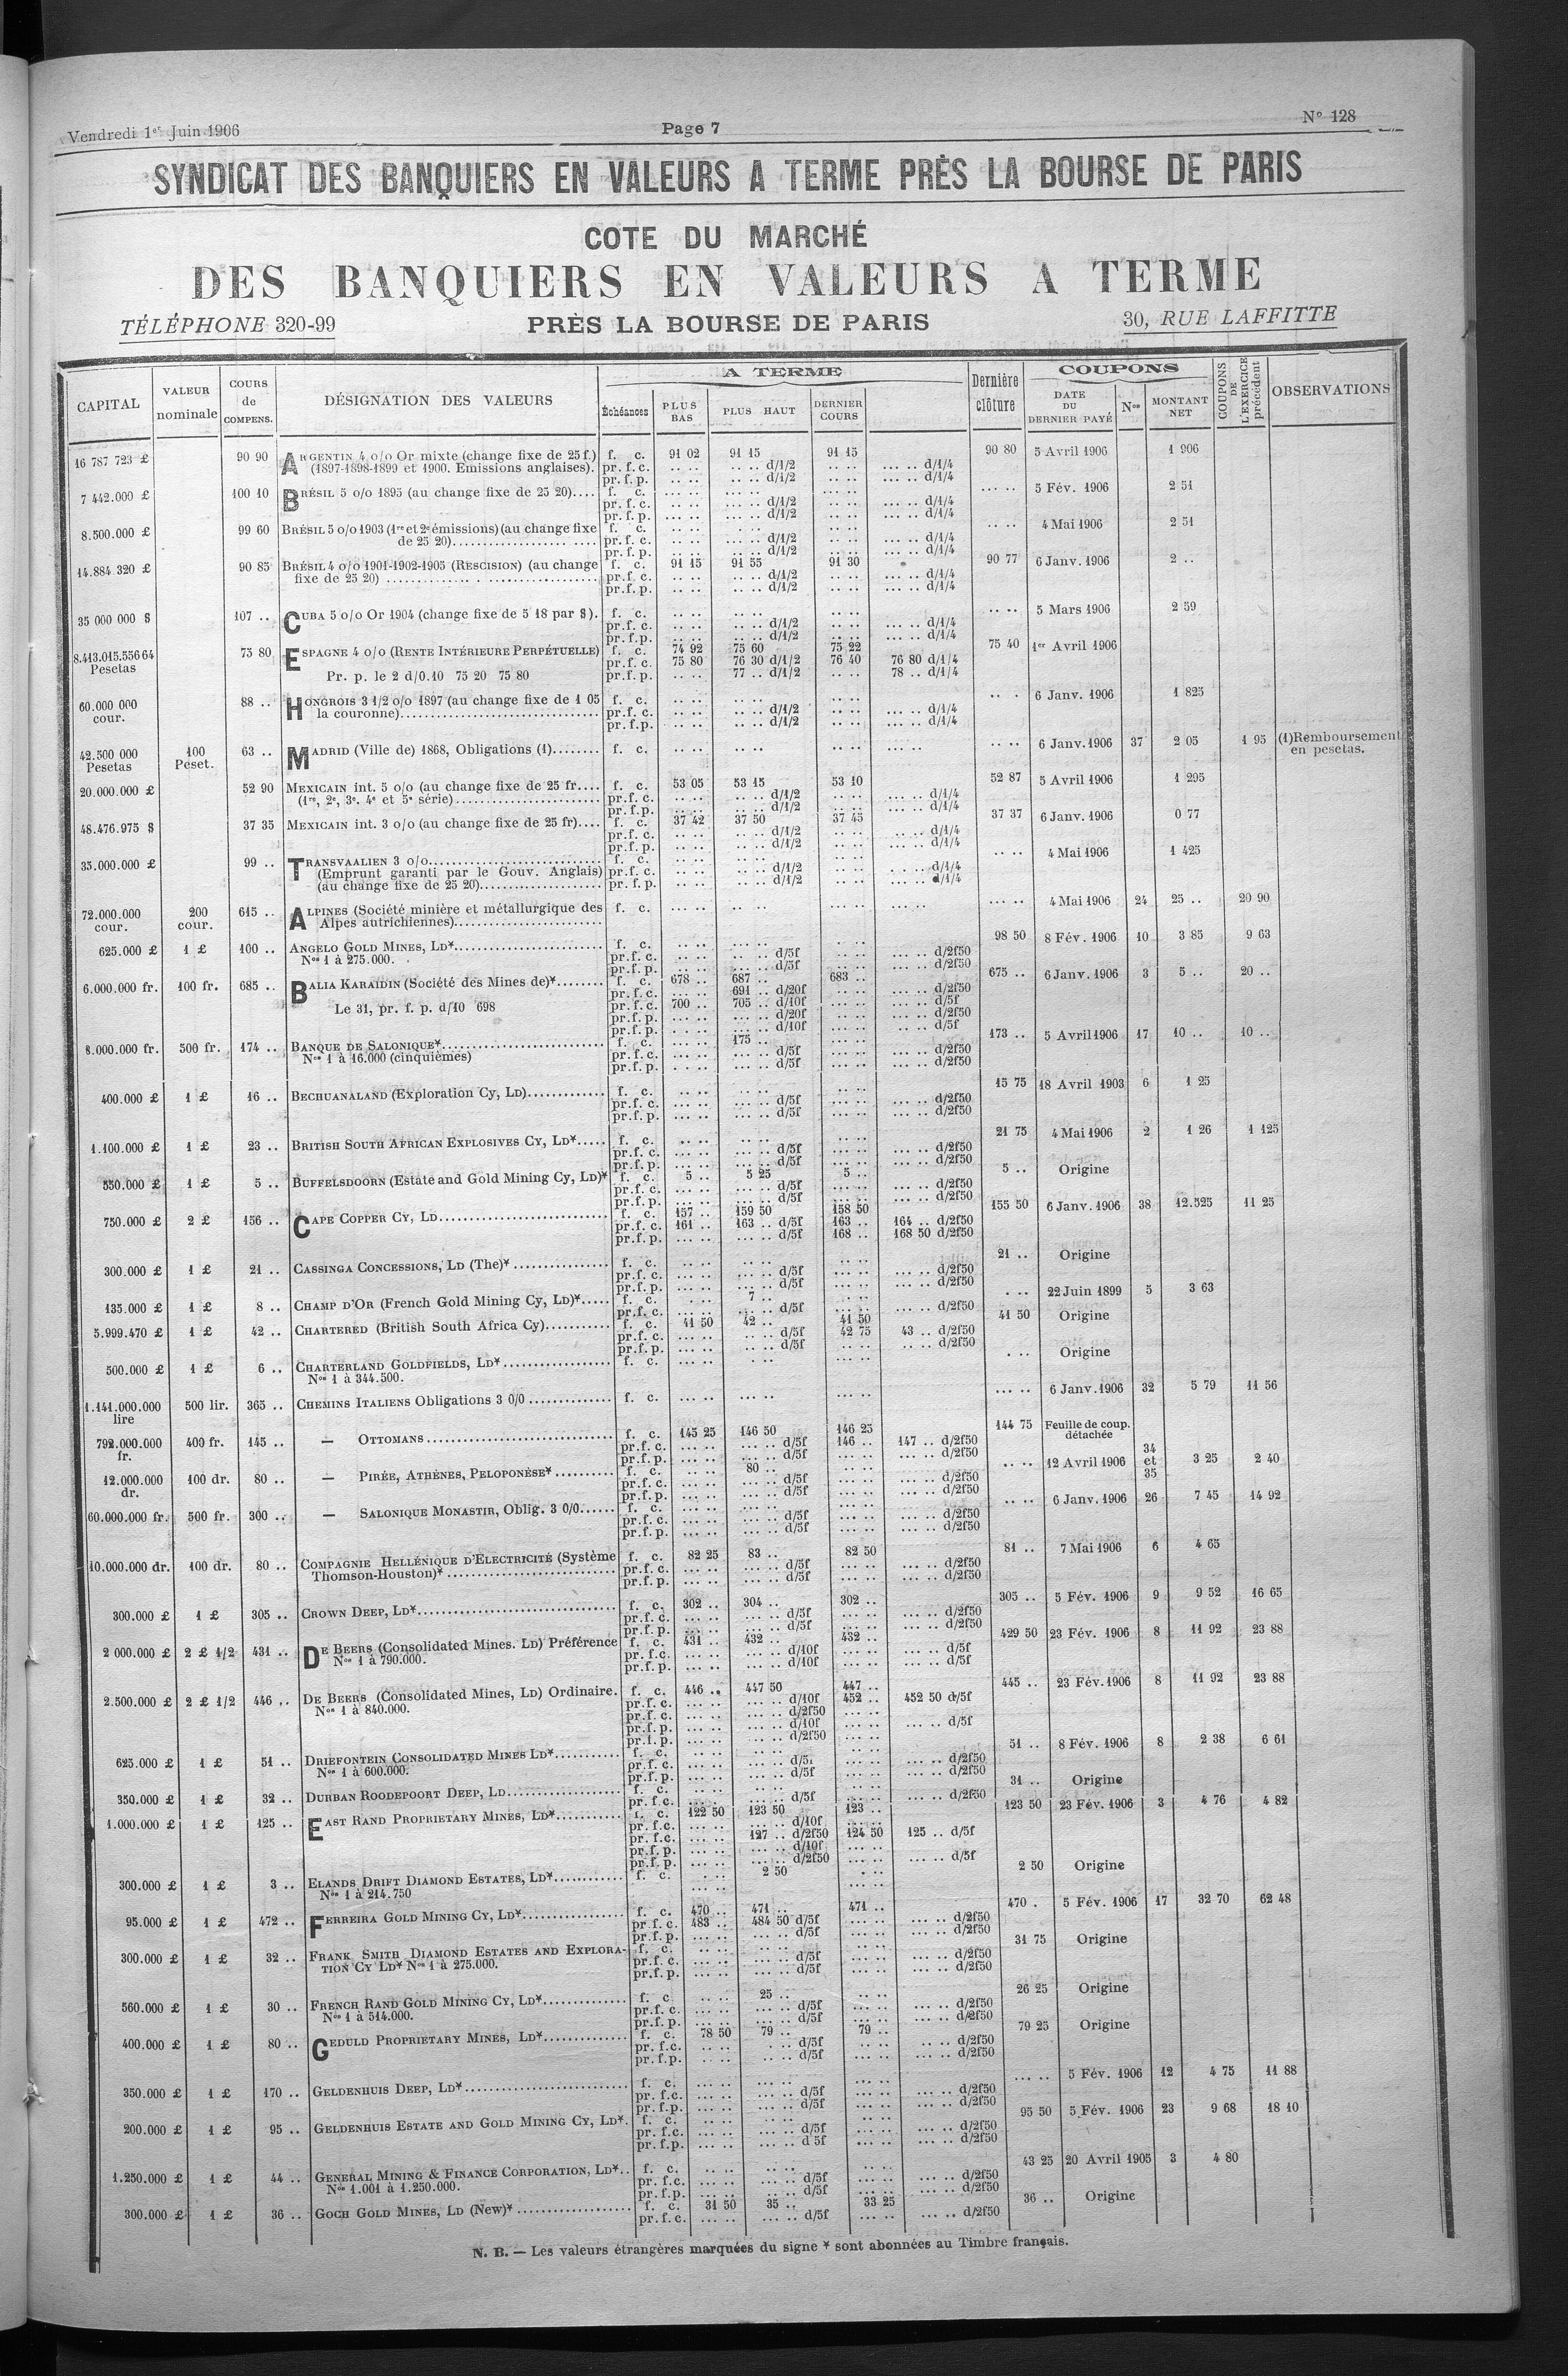 Vendredi 1er Juin 1906 Page 7 N° 128
SYNDICAT DES BANQUIERS EN VALEURS A TERME PRÈS LA BOURSE DE PARIS
COTE DU MARCHÉ
DES BANQUIERS EN VALEURS A TERME
TÉLÉPHONE 320-99 PRÈS LA BOURSE DE PARIS 30, RUE LAFFITTE
CAPITAL VALEUR nominale COURS de COMPENS. DÉSIGNATION DES VALEURS A TERME Échéances PLUS BAS PLUS HAUT DERNIER COURS Dernière clôture COUPONS DATE DU DERNIER PAYÉ Nos MONTANT NET COUPONS DE L'EXERCICE précédent OBSERVATIONS
16 787 723 £ 90 90 ARGENTIN 4 o/o Or mixte (change fixe de 25 f.) f. c. 91 02 91 15 91 15 90 80 5 Avril 1906 1 906
(1897-1898-1899 et 1900. Emissions anglaises). pr. f. c. .. .. .. .. d/1/2 .. .. ... .. d/1/4
pr. f. p. .. .. .. .. d/1/2 .. .. ... .. d/1/4
7 442.000 £ 100 10 BRÉSIL 5 o/o 1895 (au change fixe de 25 20).... f. c. ... .. ... .. ... .. ... .. 5 Fév. 1906 2 51
pr. f. c. ... .. .. .. d/1/2 .. .. ... .. d/1/4
pr. f. p. ... .. .. .. d/1/2 .. .. ... .. d/1/4
8.500.000 £ 99 60 BRÉSIL 5 o/o 1903 (1re et 2e émissions) (au change fixe f. c. .. .. .. .. .. .. .. .. 4 Mai 1906 2 51
de 25 20).................. pr. f. c. .. .. .. .. d/1/2 .. .. ... .. d/1/4
pr. f. p. .. .. .. .. d/1/2 .. .. ... .. d/1/4
14.884 320 £ 90 85 BRÉSIL 4 o/o 1901-1902-1905 (RESCISION) (au change f. c. 91 15 91 55 91 30 90 77 6 Janv. 1906 2 ..
fixe de 25 20) .................. pr. f. c. .. .. .. .. d/1/2 .. .. ... .. d/1/4
pr. f. p. .. .. .. .. d/1/2 .. .. ... .. d/1/4
35 000 000 $ 107 .. CUBA 5 o/o Or 1904 (change fixe de 5 18 par $). f. c. .. .. .. .. .. .. .. .. 5 Mars 1906 2 59
pr. f. c. .. .. .. .. d/1/2 .. .. ... .. d/1/4
pr. f. p. .. .. .. .. d/1/2 .. .. ... .. d/1/4
8.413.015.556 64 75 80 ESPAGNE 4 o/o (RENTE INTÉRIEURE PERPÉTUELLE) f. c. 74 92 75 60 75 22 75 40 1er Avril 1906
Pesetas pr. f. c. 75 80 76 30 d/1/2 76 40 76 80 d/1/4
Pr. p. le 2 d/0.10 75 20 75 80 pr. f. p. .. .. 77 .. d/1/2 .. .. 78 .. d/1/4
60.000 000 88 .. HONGROIS 3 1/2 o/o 1897 (au change fixe de 1 05 f. c. .. .. .. .. .. .. .. . 6 Janv. 1906 1 825
cour. la couronne).................. pr. f. c. .. .. .. .. d/1/2 .. .. ... .. d/1/4
pr. f. p. .. .. .. .. d/1/2 .. .. ... .. d/1/4
42.500 000 100 63 .. MADRID (Ville de) 1868, Obligations (1)........ f. c. .. .. .. .. .. .. .. .. 6 Janv. 1906 37 2 05 1 95 (1) Remboursement
Pesetas Peset. en pesetas.
20.000.000 £ 52 90 MEXICAIN int. 5 o/o (au change fixe de 25 fr.... f. c. 53 05 53 15 53 10 52 87 5 Avril 1906 1 295
(1re, 2e, 3e, 4e et 5e série).................. pr. f. c. .. .. .. .. d/1/2 .. .. ... .. d/1/4
pr. f. p. .. .. .. .. d/1/2 .. .. ... .. d/1/4
48.476.975 $ 37 35 MEXICAIN int. 3 o/o (au change fixe de 25 fr).... f. c. 37 42 37 50 37 45 37 37 6 Janv. 1906 0 77
pr. f. c. .. .. .. .. d/1/2 .. .. ... .. d/1/4
pr. f. p. .. .. .. .. d/1/2 .. .. ... .. d/1/4
35.000.000 £ 99 .. TRANSVAALIEN 3 o/o.................. f. c. .. .. .. .. .. .. .. .. 4 Mai 1906 1 425
(Emprunt garanti par le Gouv. Anglais) pr. f. c. .. .. .. .. d/1/2 .. .. ... .. d/1/4
(au change fixe de 25 20).................. pr. f. p. .. .. .. .. d/1/2 .. .. ... .. d/1/4
72.000.000 200 615 .. ALPINES (Société minière et métallurgique des f. c. ... .. .. .. ... .. ... .. ... .. 4 Mai 1906 24 25 .. 20 90
cour. cour. Alpes autrichiennes)..................
625.000 £ 1 £ 100 .. ANGELO GOLD MINES, LD*.................. f. c. .. .. ... .. .. .. 98 50 8 Fév. 1906 10 3 85 9 63
Nos 1 à 275.000. pr. f. c. .. .. .. .. d/5f .. .. ... .. d/2f50
pr. f. p. .. .. ... .. d/5f .. .. ... .. d/2f50
6.000.000 fr. 100 fr. 685 .. BALIA KARAIDIN (Société des Mines de)*........ f. c. 678 .. 687 .. 683 .. 675 .. 6 Janv. 1906 3 5 .. 20 ..
pr. f. c. ... .. 691 .. d/20f ... .. ... .. d/2f50
Le 31, pr. f. p. d/10 698 pr. f. c. 700 .. 705 .. d/10f ... .. ... .. d/5f
pr. f. p. ... .. ... .. d/20f ... .. ... .. d/2f50
pr. f. p. ... .. ... .. d/10f ... .. ... .. d/5f
8.000.000 fr. 500 fr. 174 .. BANQUE DE SALONIQUE*.................. f. c. ... .. 175 .. ... .. 173 .. 5 Avril 1906 17 10 .. 10 ..
Nos 1 à 16.000 (cinquièmes) pr. f. c. ... .. ... .. d/5f ... .. ... .. d/2f50
pr. f. p. ... .. ... .. d/5f ... .. ... .. d/2f50
400.000 £ 1 £ 16 .. BECHUANALAND (Exploration Cy, LD)............. f. c. .. .. .. .. .. .. 15 75 18 Avril 1903 6 1 25
pr. f. c. ... .. ... .. d/5f ... .. ... .. d/2f50
pr. f. p. ... .. ... .. d/5f ... .. ... .. d/2f50
1.100.000 £ 1 £ 23 .. BRITISH SOUTH AFRICAN EXPLOSIVES CY, LD*..... f. c. .. .. .. .. .. .. 21 75 4 Mai 1906 2 1 26 1 125
pr. f. c. ... .. ... .. d/5f ... .. ... .. d/2f50
pr. f. p. ... .. ... .. d/5f ... .. ... .. d/2f50
550.000 £ 1 £ 5 .. BUFFELSDOORN (Estate and Gold Mining Cy, LD)* f. c. 5 .. 5 25 5 .. 5 .. Origine
pr. f. c. ... .. ... .. d/5f ... .. ... .. d/2f50
pr. f. p. ... .. ... .. d/5f ... .. ... .. d/2f50
750.000 £ 2 £ 156 .. CAPE COPPER CY, LD.................. f. c. 157 .. 159 50 158 50 155 50 6 Janv. 1906 38 12.525 11 25
pr. f. c. 161 .. 163 .. d/5f 163 .. 164 .. d/2f50
pr. f. p. ... .. ... .. d/5f 168 .. 168 50 d/2f50
300.000 £ 1 £ 21 .. CASSINGA CONCESSIONS, LD (The)*................ f. c. .. .. .. .. .. .. 21 .. Origine
pr. f. c. ... .. ... .. d/5f ... .. ... .. d/2f50
pr. f. p. ... .. ... .. d/5f ... .. ... .. d/2f50
135.000 £ 1 £ 8 .. CHAMP D'OR (French Gold Mining Cy, LD)*..... f. c. .. .. 7 .. .. .. . .. 22 Juin 1899 5 3 63
pr. f. c. ... .. ... .. d/5f ... .. ... .. d/2f50
5.999.470 £ 1 £ 42 .. CHARTERED (British South Africa Cy)........... f. c. 41 50 42 .. 41 50 41 50 Origine
pr. f. c. ... .. .. .. d/5f 42 75 43 .. d/2f50
pr. f. p. ... .. .. .. d/5f ... .. .. .. d/2f50
500.000 £ 1 £ 6 .. CHARTERLAND GOLDFIELDS, LD*.................. f. c. ... .. . .. ... .. . .. Origine
Nos 1 à 344.500.
1.141.000.000 500 lir. 365 .. CHEMINS ITALIENS Obligations 3 0/0 .............. f. c. ... .. ... .. ... .. ... .. 6 Janv. 1906 32 5 79 11 56
lire
792.000.000 400 fr. 145 .. — OTTOMANS.................. f. c. 145 25 146 50 146 25 144 75 Feuille de coup.
fr. pr. f. c. ... .. ... .. d/5f 146 .. 147 .. d/2f50 détachée
pr. f. p. ... .. ... .. d/5f .. .. ... .. d/2f50
12.000.000 100 dr. 80 .. — PIRÉE, ATHÈNES, PELOPONÈSE*.......... f. c. .. .. 80 .. .. .. .. .. 12 Avril 1906 34 et 35 3 25 2 40
dr. pr. f. c. ... .. ... .. d/5f ... .. ... .. d/2f50
pr. f. p. ... .. ... .. d/5f ... .. ... .. d/2f50
60.000.000 fr. 500 fr. 300 .. — SALONIQUE MONASTIR, Oblig. 3 0/0...... f. c. ... .. ... .. ... .. .. .. 6 Janv. 1906 26 7 45 14 92
pr. f. c. ... .. ... .. d/5f ... .. ... .. d/2f50
pr. f. p. ... .. ... .. d/5f ... .. ... .. d/2f50
10.000.000 dr. 100 dr. 80 .. COMPAGNIE HELLÉNIQUE D'ELECTRICITÉ (Système f. c. 82 25 83 .. 82 50 81 .. 7 Mai 1906 6 4 65
Thomson-Houston)*.................. pr. f. c. ... .. ... .. d/5f ... .. ... .. d/2f50
pr. f. p. ... .. ... .. d/5f ... .. ... .. d/2f50
300.000 £ 1 £ 305 .. CROWN DEEP, LD*.................. f. c. 302 .. 304 .. 302 .. 305 .. 5 Fév. 1906 9 9 52 16 65
pr. f. c. ... .. ... .. d/5f ... .. ... .. d/2f50
pr. f. p. ... .. ... .. d/5f ... .. ... .. d/2f50
2 000.000 £ 2 £ 1/2 431 .. DE BEERS (Consolidated Mines. LD) Préférence f. c. 431 .. 432 .. 432 .. 429 50 23 Fév. 1906 8 11 92 23 88
Nos 1 à 790.000. pr. f. c. ... .. ... .. d/10f ... .. ... .. d/5f
pr. f. p. ... .. ... .. d/10f ... .. ... .. d/5f
2.500.000 £ 2 £ 1/2 446 .. DE BEERS (Consolidated Mines, LD) Ordinaire. f. c. 446 .. 447 50 447 .. 445 .. 23 Fév. 1906 8 11 92 23 88
Nos 1 à 840.000. pr. f. c. ... .. ... .. d/10f 452 .. 452 50 d/5f
pr. f. c. ... .. ... .. d/2f50 ... ..
pr. f. p. ... .. ... .. d/10f ... .. ... .. d/5f
pr. f. p. ... .. ... .. d/2f50 ... ..
625.000 £ 1 £ 51 .. DRIEFONTEIN CONSOLIDATED MINES LD*........... f. c. .. .. .. .. .. .. 51 .. 8 Fév. 1906 8 2 38 6 61
Nos 1 à 600.000. pr. f. c. ... .. ... .. d/5f ... .. ... .. d/2f50
pr. f. p. ... .. ... .. d/5f ... .. ... .. d/2f50
350.000 £ 1 £ 32 .. DURBAN ROODEPOORT DEEP, LD.................. f. c. .. .. .. .. .. .. 31 .. Origine
pr. f. c. ... .. ... .. d/5f ... .. ... .. d/2f50
1.000.000 £ 1 £ 125 .. EAST RAND PROPRIETARY MINES, LD*........... f. c. 122 50 123 50 123 .. 123 50 23 Fév. 1906 3 4 76 4 82
pr. f. c. ... .. ... .. d/10f ... ..
pr. f. c. ... .. 127 .. d/2f50 124 50 125 .. d/5f
pr. f. p. ... .. ... .. d/10f ... ..
pr. f. p. ... .. ... .. d/2f50 ... .. ... .. d/5f
300.000 £ 1 £ 3 .. ELANDS DRIFT DIAMOND ESTATES, LD*............ f. c. . .. 2 50 . .. 2 50 Origine
Nos 1 à 214.750
95.000 £ 1 £ 472 .. FERREIRA GOLD MINING CY, LD*.................. f. c. 470 .. 471 .. 471 .. 470 . 5 Fév. 1906 17 32 70 62 48
pr. f. c. 483 .. 484 50 d/5f ... .. ... .. d/2f50
pr. f. p. ... .. ... .. d/5f ... .. ... .. d/2f50
300.000 £ 1 £ 32 .. FRANK SMITH DIAMOND ESTATES AND EXPLORA- f. c. .. .. .. .. .. .. 31 75 Origine
TION CY LD* Nos 1 à 275.000. pr. f. c. ... .. ... .. d/5f ... .. ... .. d/2f50
pr. f. p. ... .. ... .. d/5f ... .. ... .. d/2f50
560.000 £ 1 £ 30 .. FRENCH RAND GOLD MINING CY, LD*.............. f. c .. .. 25 .. .. .. 26 25 Origine
Nos 1 à 514.000. pr. f. c. ... .. ... .. d/5f ... .. ... .. d/2f50
pr. f. p. ... .. ... .. d/5f ... .. ... .. d/2f50
400.000 £ 1 £ 80 .. GEDULD PROPRIETARY MINES, LD*.............. f. c. 78 50 79 .. 79 .. 79 25 Origine
pr. f. c. .. .. .. .. d/5f ... .. ... .. d/2f50
pr. f. p. .. .. .. .. d/5f ... .. ... .. d/2f50
350.000 £ 1 £ 170 .. GELDENHUIS DEEP, LD*.................. f. c. ... .. ... .. ... .. ... .. 5 Fév. 1906 12 4 75 11 88
pr. f. c. ... .. ... .. d/5f ... .. ... .. d/2f50
pr. f. p. ... .. ... .. d/5f ... .. ... .. d/2f50
200.000 £ 1 £ 95 .. GELDENHUIS ESTATE AND GOLD MINING CY, LD*. f. c. .. .. .. .. .. .. 95 50 5 Fév. 1906 23 9 68 18 10
pr. f. c. ... .. ... .. d/5f ... .. ... .. d/2f50
pr. f. p. ... .. ... .. d 5f ... .. ... .. d/2f50
1.250.000 £ 1 £ 44 .. GENERAL MINING & FINANCE CORPORATION, LD*.. f. c. .. .. .. .. .. .. 43 25 20 Avril 1905 3 4 80
Nos 1.001 à 1.250.000. pr. f. c. ... .. ... .. d/5f ... .. ... .. d/2f50
pr. f. p. ... .. ... .. d/5f ... .. ... .. d/2f50
300.000 £ 1 £ 36 .. GOCH GOLD MINES, LD (New)*.................. f. c. 31 50 35 .. 33 25 36 .. Origine
pr. f. c. ... .. ... .. d/5f ... .. ... .. d/2f50
N. B. — Les valeurs étrangères marquées du signe * sont abonnées au Timbre français.